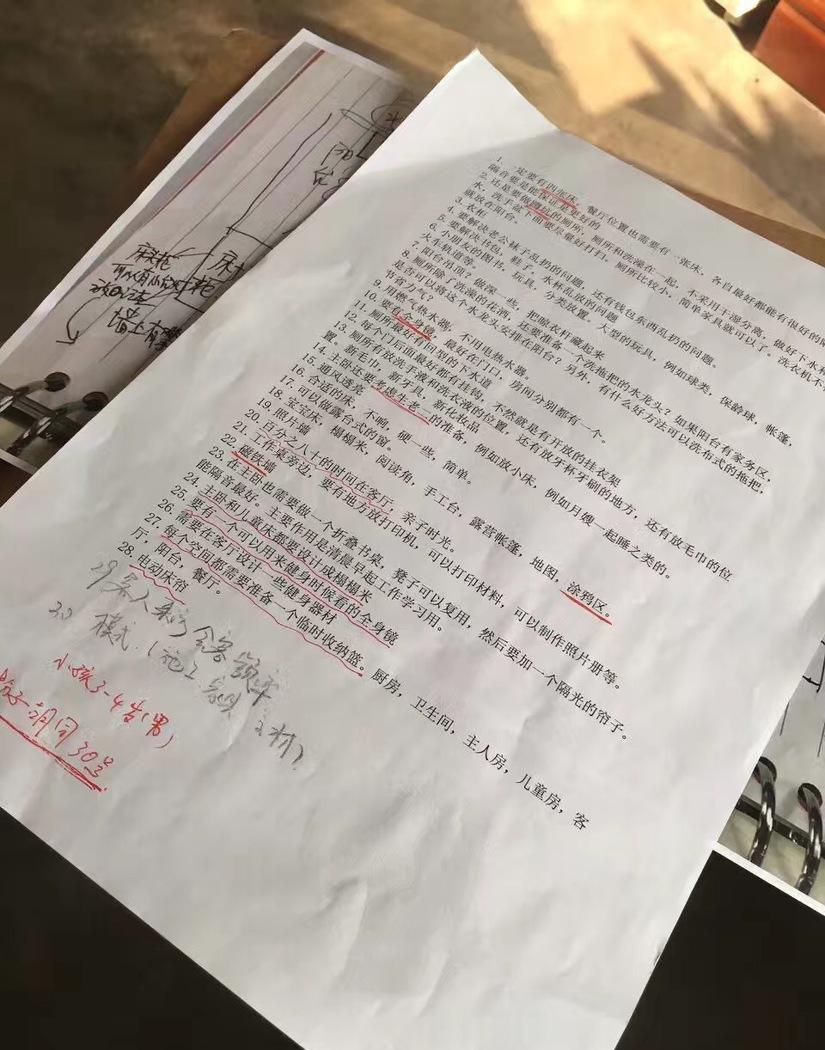 1、一定要有四张床，餐厅位置也需要有一张床，各自最好都能有很好的隔
隔音要是能保证是更好的
2. 还是要做蹲坑的厕所，厕所和洗澡在一起，不采用干湿分离，做好下水和
水，洗手盆下面要尽量好打扫，厕所比较小，简单家具就可以了。洗衣机不
就放在阳台。
3. 衣柜
4. 要解决老公袜子乱扔的问题，还有钱包东西乱扔的问题。
5. 要解决书包，鞋子，水杯乱放的问题
6. 小朋友的图书，玩具，分类放置，大型的玩具，例如球类，保龄球，帐篷，
火车轨道等。
7. 阳台吊顶？做深一些，把晾衣杆藏起来
8. 厕所除了洗澡的花洒，还要准备一个洗拖把的水龙头？如果阳台有家务区，
是否可以将这个水龙头安排在阳台？另外，有什么好方法可以洗布式的拖把，
节省力气？
9. 用燃气热水器，不用电热水器。
10. 要有全身镜，最好在门口，房间分别都有一个。
11. 厕所最好有回型的下水道
12. 每个门后面最好都有挂钩，不然就是有开放的挂衣架
13. 厕所有放洗手液和洗衣液的位置，还有放牙杯牙刷的地方，还有放毛巾的位
置。新毛巾，新牙具，新化妆品
14. 主卧还要考虑生老二的准备，例如放小床，例如月嫂一起睡之类的。
15. 通风透亮
16. 合适的床，不响，硬一些，简单。
17. 可以做露台式的窗。
18. 宝宝床，榻榻米，阅读角，手工台，露营帐篷，地图，涂鸦区。
19. 照片墙
20. 百分之八十的时间在客厅，亲子时光。
21. 工作桌旁边，要有地方放打印机，可以打印材料，可以制作照片册等。
22. 磁铁墙
23. 在主卧也需要做一个折叠书桌，凳子可以复用，然后要加一个隔光的帘子。
能隔音最好。主要作用是清晨早起工作学习用。
24. 主卧和儿童床都要设计成榻榻米
25. 要有一个可以用来健身时候看的全身镜
26. 需要在客厅设计一些健身器材
27. 每个空间都需要准备一个临时收纳篮。厨房，卫生间，主人房，儿童房，客
厅，阳台，餐厅。
28. 电动床帘
29 客人来访 会客频率
30 模式（施工 家具 主材）
小孩3-4岁（男）
胡同30号
床柜
墙